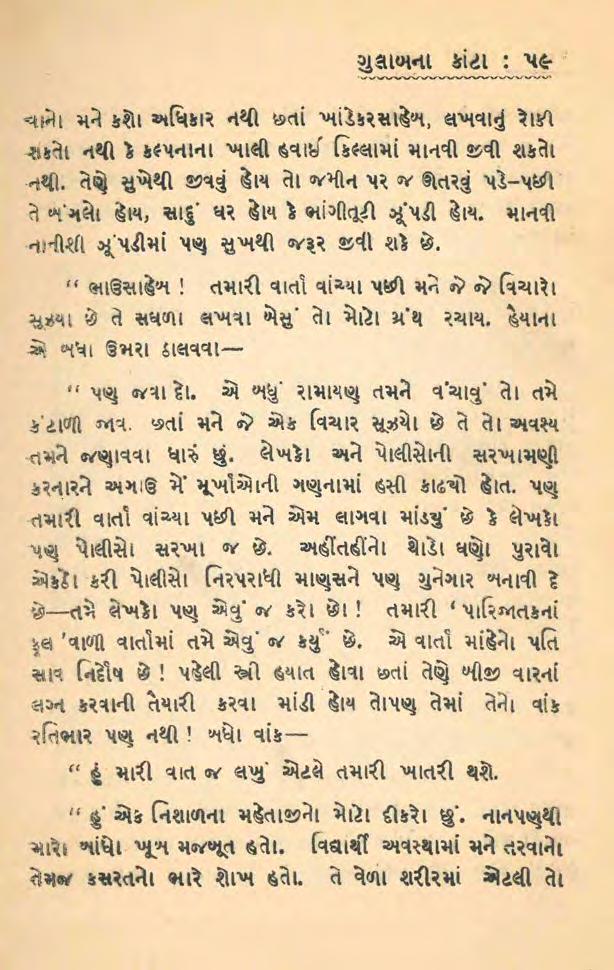 ગુલાબના કાંટા : ૫૯
વાનો મને કશો અધિકાર નથી છતાં ખાંડેકરસાહેબ, લખવાનું રોકી
શકતો નથી કે કલ્પનાના ખાલી હવાઈ કિલ્લામાં માનવી જીવી શકતો
નથી. તેણે સુખેથી જીવવું હોય તો જમીન પર જ ઊતરવું પડે–પછી
તે બંગલો હોય, સાદું ઘર હોય કે ભાંગીતૂટી ઝૂંપડી હોય. માનવી
નાનીશી ઝૂંપડીમાં પણ સુખથી જરૂર જીવી શકે છે.
“ ભાઉસાહેબ ! તમારી વાર્તા વાંચ્યા પછી મને જે જે વિચારો
સૂઝયા છે તે સઘળા લખવા બેસું તો મોટો ગ્રંથ રચાય. હૈયાના
એ બધા ઉભરા ઠાલવવા—
“ પણ જવા દો. એ બધું રામાયણ તમને વંચાવું તો તમે
કંટાળી જાવ. છતાં મને જે એક વિચાર સૂઝયો છે તે તો અવશ્ય
તમને જણાવવા ધારું છું. લેખકો અને પોલીસોની સરખામણી
કરનારને અગાઉ મેં મૂર્ખાઓની ગણનામાં હસી કાઢયો હોત. પણ
તમારી વાર્તા વાંચ્યા પછી મને એમ લાગવા માંડયું છે કે લેખકો
પણ પોલીસો સરખા જ છે. અહીંતહીંનો થોડો ઘણો પુરાવો
એકઠો કરી પોલીસો નિરપરાધી માણસને પણ ગુનેગાર બનાવી દે
છે—તમે લેખકો પણ એવું જ કરો છો ! તમારી ‘ પારિજાતકનાં
ફૂલ ’વાળી વાર્તામાં તમે એવું જ કર્યું છે. એ વાર્તા માંહેનો પતિ
સાવ નિર્દોષ છે ! પહેલી સ્ત્રી હયાત હોવા છતાં તેણે બીજી વારનાં
લગ્ન કરવાની તૈયારી કરવા માંડી હોય તોપણ તેમાં તેનો વાંક
રતિભાર પણ નથી ! બધો વાંક—
“ હું મારી વાત જ લખું એટલે તમારી ખાતરી થશે.
“ હું એક નિશાળના મહેતાજીનો મોટો દીકરો છું. નાનપણથી
મારો બાંધો ખૂબ મજબૂત હતો. વિદ્યાર્થી અવસ્થામાં મને તરવાનો
તેમજ કસરતનો ભારે શોખ હતો. તે વેળા શરીરમાં એટલી તો